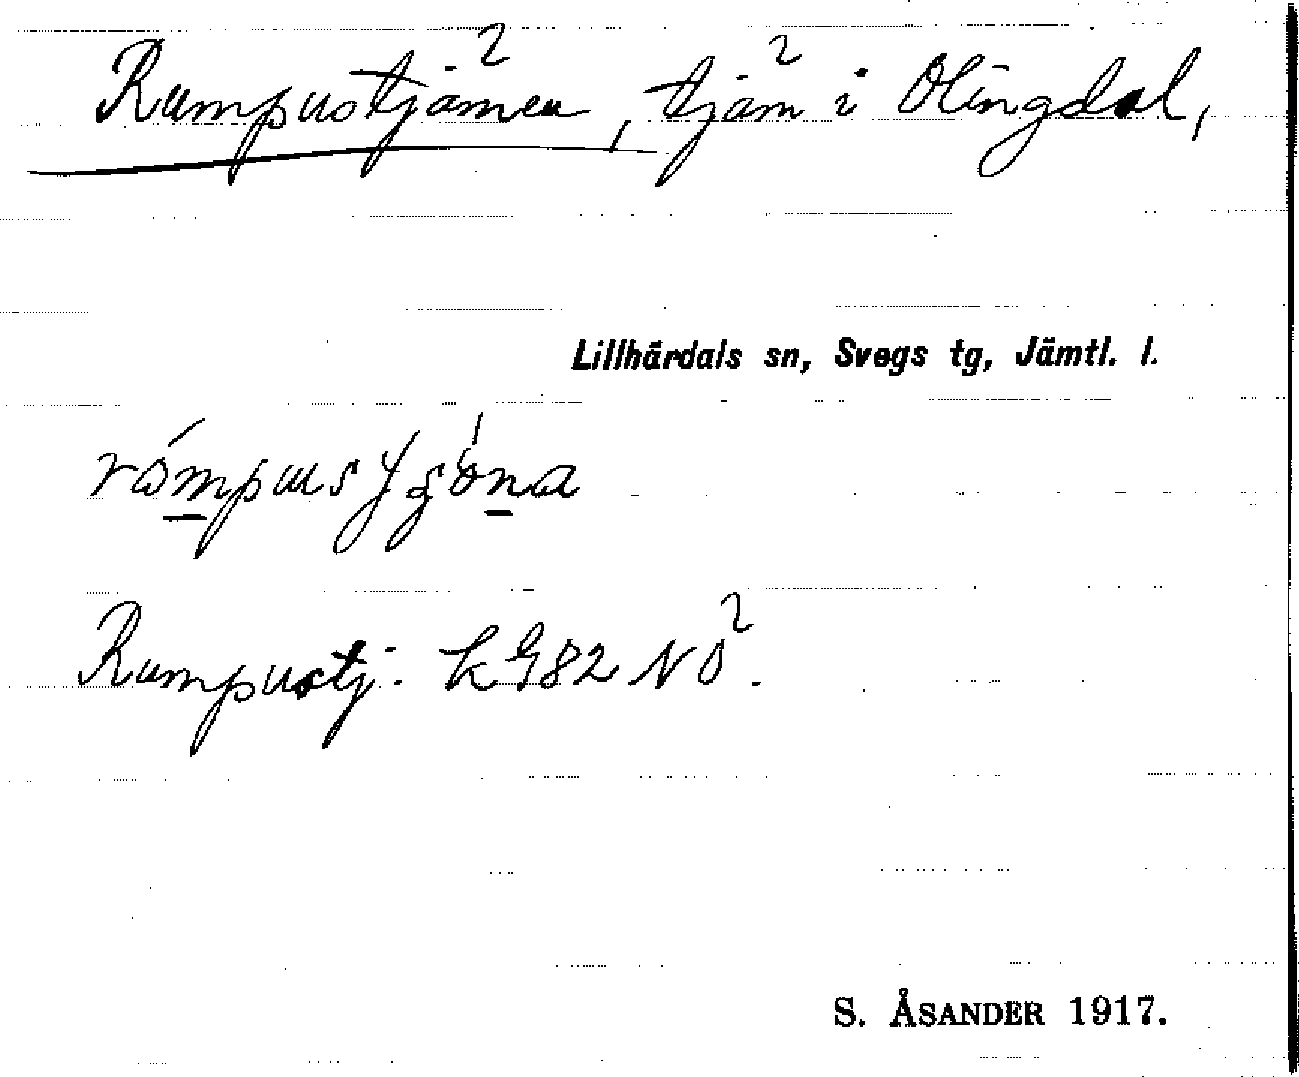 Rumpustjärnen, tjärn i Olingdal,
Lillhärdals sn, Svegs tg, Jämtl. l.
Rumpustj. K G82 NO².
S. ÅSANDER 1917.